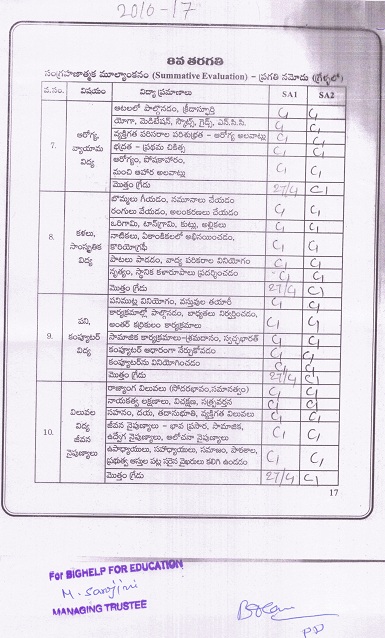 2016-17
6వ తరగతి
సంగ్రహణాత్మక మూల్యాంకనం (Summative Evaluation) – ప్రగతి నమోదు (గ్రేళ్ళలో)
వ.సం. విషయం విద్యా ప్రమాణాలు SA1 SA2
7. ఆరోగ్య, వ్యాయామ విద్య
ఆటలలో పాల్గొనడం, క్రీడాస్ఫూర్తి C1 C1
యోగా, మెడిటేషన్, స్కౌట్స్, గైడ్స్, ఎన్.సి.సి. C1 C1
వ్యక్తిగత పరిసరాల పరిశుభ్రత – ఆరోగ్య అలవాట్లు C1 C1
భద్రత – ప్రథమ చికిత్స C1 C1
ఆరోగ్యం, పోషకాహారం,
మంచి ఆహార అలవాట్లు C1 C1
మొత్తం గ్రేడు 27/4 C1
8. కళలు, సాంస్కృతిక విద్య
బొమ్మలు గీయడం, నమూనాలు చేయడం
రంగులు వేయడం, అలంకరణలు చేయడం C1 C1
ఒరిగామి, టాన్‌గ్రామ్, కుట్లు, అల్లికలు C1 C1
నాటికలు, ఏకాంకికలలో అభినయించడం,
కొరియోగ్రఫీ C1 C1
పాటలు పాడడం, వాద్య పరికరాల వినియోగం C1 C1
నృత్యం, స్థానిక కళారూపాలు ప్రదర్శించడం C1 C1
మొత్తం గ్రేడు 27/4 C1
9. పని, కంప్యూటర్ విద్య
పనిముట్ల వినియోగం, వస్తువుల తయారీ C1 C1
కార్యక్రమాల్లో పాల్గొనడం, బాధ్యతలు నిర్వర్తించడం,
అంతర్ తర్గతుల కార్యక్రమాలు C1 C1
సామాజిక కార్యక్రమాలు-శ్రమదానం, స్వచ్ఛభారత్ C1 C1
కంప్యూటర్ ఆధారంగా నేర్చుకోవడం C1 C1
కంప్యూటర్‌ను వినియోగించడం C1 C1
మొత్తం గ్రేడు 27/4 C1
10. విలువల విద్య జీవన నైపుణ్యాలు
రాజ్యాంగ విలువలు (సోదరభావం,సమానత్వం) C1 C1
నాయకత్వ లక్షణాలు, విచక్షణ, సత్ప్రవర్తన C1 C1
సహనం, దయ, తదానుభూతి, వ్యక్తిగత విలువలు C1 C1
జీవన నైపుణ్యాలు – భావ ప్రసార, సామాజిక,
ఉద్వేగ నైపుణ్యాలు, ఆలోచనా నైపుణ్యాలు C1 C1
ఉపాధ్యాయులు, సహాధ్యాయులు, సమాజం, పాఠశాల,
ప్రభుత్వ ఆస్తుల పట్ల సరైన వైఖరులు కలిగి ఉండడం C1 C1
మొత్తం గ్రేడు 27/4 C1
17
For BIGHELP FOR EDUCATION
M. Sarojini
MANAGING TRUSTEE
PD